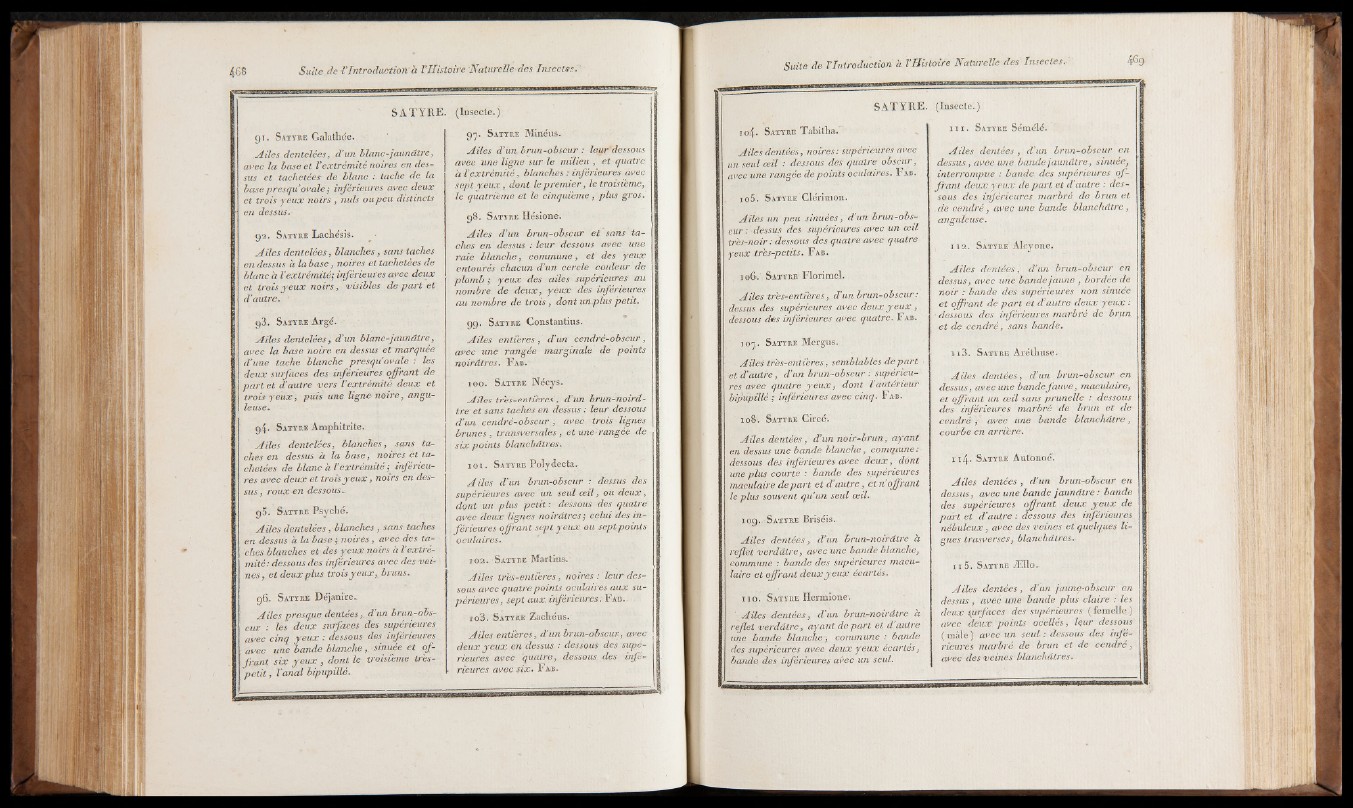 468 Suite de l'Introduction à l'Histoire Naturelle des Insectes.
SATYRE. (Insecte.)
91. SATYRE Galathée.
Ailes dentelées, d'un blanc-jaunâtre,
avec la base et l'extrémité noires en des-
sus et tachetées de blanc : tache de la
base presqu'ovale; inférieures avec deux
et trois yeux noirs, nuls ou peu distincts
en dessus.
92. SATYRE Lachésis.
Ailes dentelées, blanches, sans taches
en dessus à la base, noires et tachetées de
blanc à l'extrémité; inférieures avec deux
et trois yeux noirs, visibles de part et
d'autre.
93. SATYRE Argé.
Ailes dentelées, d'un blanc-jaunâtre,
avec la base noire en dessus et marquée
d'une tache blanche presqu'ovale : les
deux surfaces des inférieures offrant de
part et d'autre vers l'extrémité deux et
trois yeux, puis une ligne noire, angu-
leuse.
94. SATYRE Amphitrite.
Ailes dentelées, blanches, sans ta-
ches en dessus à la base, noires et ta-
chetées de blanc à l'extrémité; inférieu-
res avec deux et trois yeux, noirs en des-
sus, roux en dessous.
95. SATYRE Psyché.
Ailes dentelées, blanches, sans taches
en dessus à la base; noires, avec des ta-
ches blanches et des yeux noirs à l'extré-
mité : dessous des inférieures avec des vei-
nes, et deux plus trois yeux, bruns.
96. SATYRE Déjanire.
Ailes presque dentées, d'un brun-obs-
cur : les deux surfaces des supérieures
avec cinq yeux : dessous des inférieures
avec une bande blanche, sinuée et of-
frant six yeux, dont le troisième très-
petit, l'anal bipupillé.
97. SATYRE Minéus.
Ailes d'un brun-obscur : leur dessous
avec une ligne sur le milieu, et quatre
à l'extrémité, blanches : inférieures avec
sept yeux, dont le premier, le troisième,
le quatrième et le cinquième, plus gros.
98. SATYRE Hésione.
Ailes d'un brun-obscur et sans ta-
ches en dessus : leur dessous avec une
raie blanche, commune, et des yeux
entourés chacun d'un cercle couleur de
plomb; yeux des ailes supérieures au
nombre de deux, yeux des inférieures
au nombre de trois, dont un plus petit.
99. SATYRE Constantius.
Ailes entières, d'un cendré-obscur,
avec une rangée marginale de points
noirâtres. FAB.
100. SATYRE Nécys.
Ailes très-entières, d'un brun-noirâ-
tre et sans taches en dessus : leur dessous
d'un cendré-obscur, avec trois lignes
brunes, transversales, et une rangée de
six points blanchâtres.
101. SATYRE Polydecta.
Ailes d'un brun-obscur : dessus des
supérieures avec un seul œil, ou deux,
dont un plus petit : dessous des quatre
avec deux lignes noirâtres; celui des in-
férieures offrant sept yeux ou sept points
oculaires.
102. SATYRE Martius.
Ailes très-entières, noires : leur des-
sous avec quatre points oculaires aux su-
périeures, sept aux inférieures. FAB.
103. SATYRE Zachéus.
Ailes entières, d'un brun-obscur, avec
deux yeux en dessus : dessous des supé-
rieures avec quatre, dessous des infé-
rieures avec six. FAB.
Suite de l'Introduction à l'Histoire Naturelle des Insectes. 469
SATYRE. (Insecte.)
104. SATYRE Tabitha.
Ailes dentées, noires : supérieures avec
un seul œil : dessous des quatre obscur,
avec une rangée de points oculaires. FAB.
105. SATYRE Clérimon.
Ailes un peu sinuées, d'un brun-obs-
cur : dessus des supérieures avec un œil
très-noir : dessous des quatre avec quatre
yeux très-petits. FAB.
106. SATYRE Florimel.
Ailes très-entières, d'un brun-obscur :
dessus des supérieures avec deux yeux,
dessous des inférieures avec quatre. FAB.
107. SATYRE Mergus.
Ailes très-entières, semblables de part
et d'autre, d'un brun-obscur : supérieu-
res avec quatre yeux, dont l'antérieur
bipupillé; inférieures avec cinq. FAB.
108. SATYRE Circé.
Ailes dentées, d'un noir-brun, ayant
en dessus une bande blanche, commune :
dessous des inférieures avec deux, dont
une plus courte : bande des supérieures
maculaire de part et d'autre, et n'offrant
le plus souvent qu'un seul œil.
109. SATYRE Briséis.
Ailes dentées, d'un brun-noirâtre à
reflet verdâtre, avec une bande blanche,
commune : bande des supérieures macu-
laire et offrant deux yeux écartés.
110. SATYRE Hermione.
Ailes dentées, d'un brun-noirâtre à
reflet verdâtre, ayant de part et d'autre
une bande blanche, commune : bande
des supérieures avec deux yeux écartés,
bande des inférieures avec un seul.
111. SATYRE Sémélé.
Ailes dentées, d'un brun-obscur en
dessus, avec une bande jaunâtre, sinuée,
interrompue : bande des supérieures of-
frant deux yeux de part et d'autre : des-
sous des inférieures marbré de brun et
de cendré, avec une bande blanchâtre,
anguleuse.
112. SATYRE Alcyone.
Ailes dentées, d'un brun-obscur en
dessus, avec une bande jaune, bordée de
noir : bande des supérieures non sinuée
et offrant de part et d'autre deux yeux :
dessous des inférieures marbré de brun
et de cendré, sans bande.
113. SATYRE Aréthuse.
Ailes dentées, d'un brun-obscur en
dessus, avec une bande fauve, maculaire,
et offrant un œil sans prunelle : dessous
des inférieures marbré de brun et de
cendré, avec une bande blanchâtre,
courbe en arrière.
114. SATYRE Autonoé.
Ailes dentées, d'un brun-obscur en
dessus, avec une bande jaunâtre : bande
des supérieures offrant deux yeux de
part et d'autre : dessous des inférieures
nébuleux, avec des veines et quelques li-
gnes trasverses, blanchâtres.
115. SATYRE Ællo.
Ailes dentées, d'un jaune-obscur en
dessus, avec une bande plus claire : les
deux surfaces des supérieures (femelle)
avec deux points ocellés, leur dessous
(mâle) avec un seul : dessous des infé-
rieures marbré de brun et de cendré,
avec des veines blanchâtres.